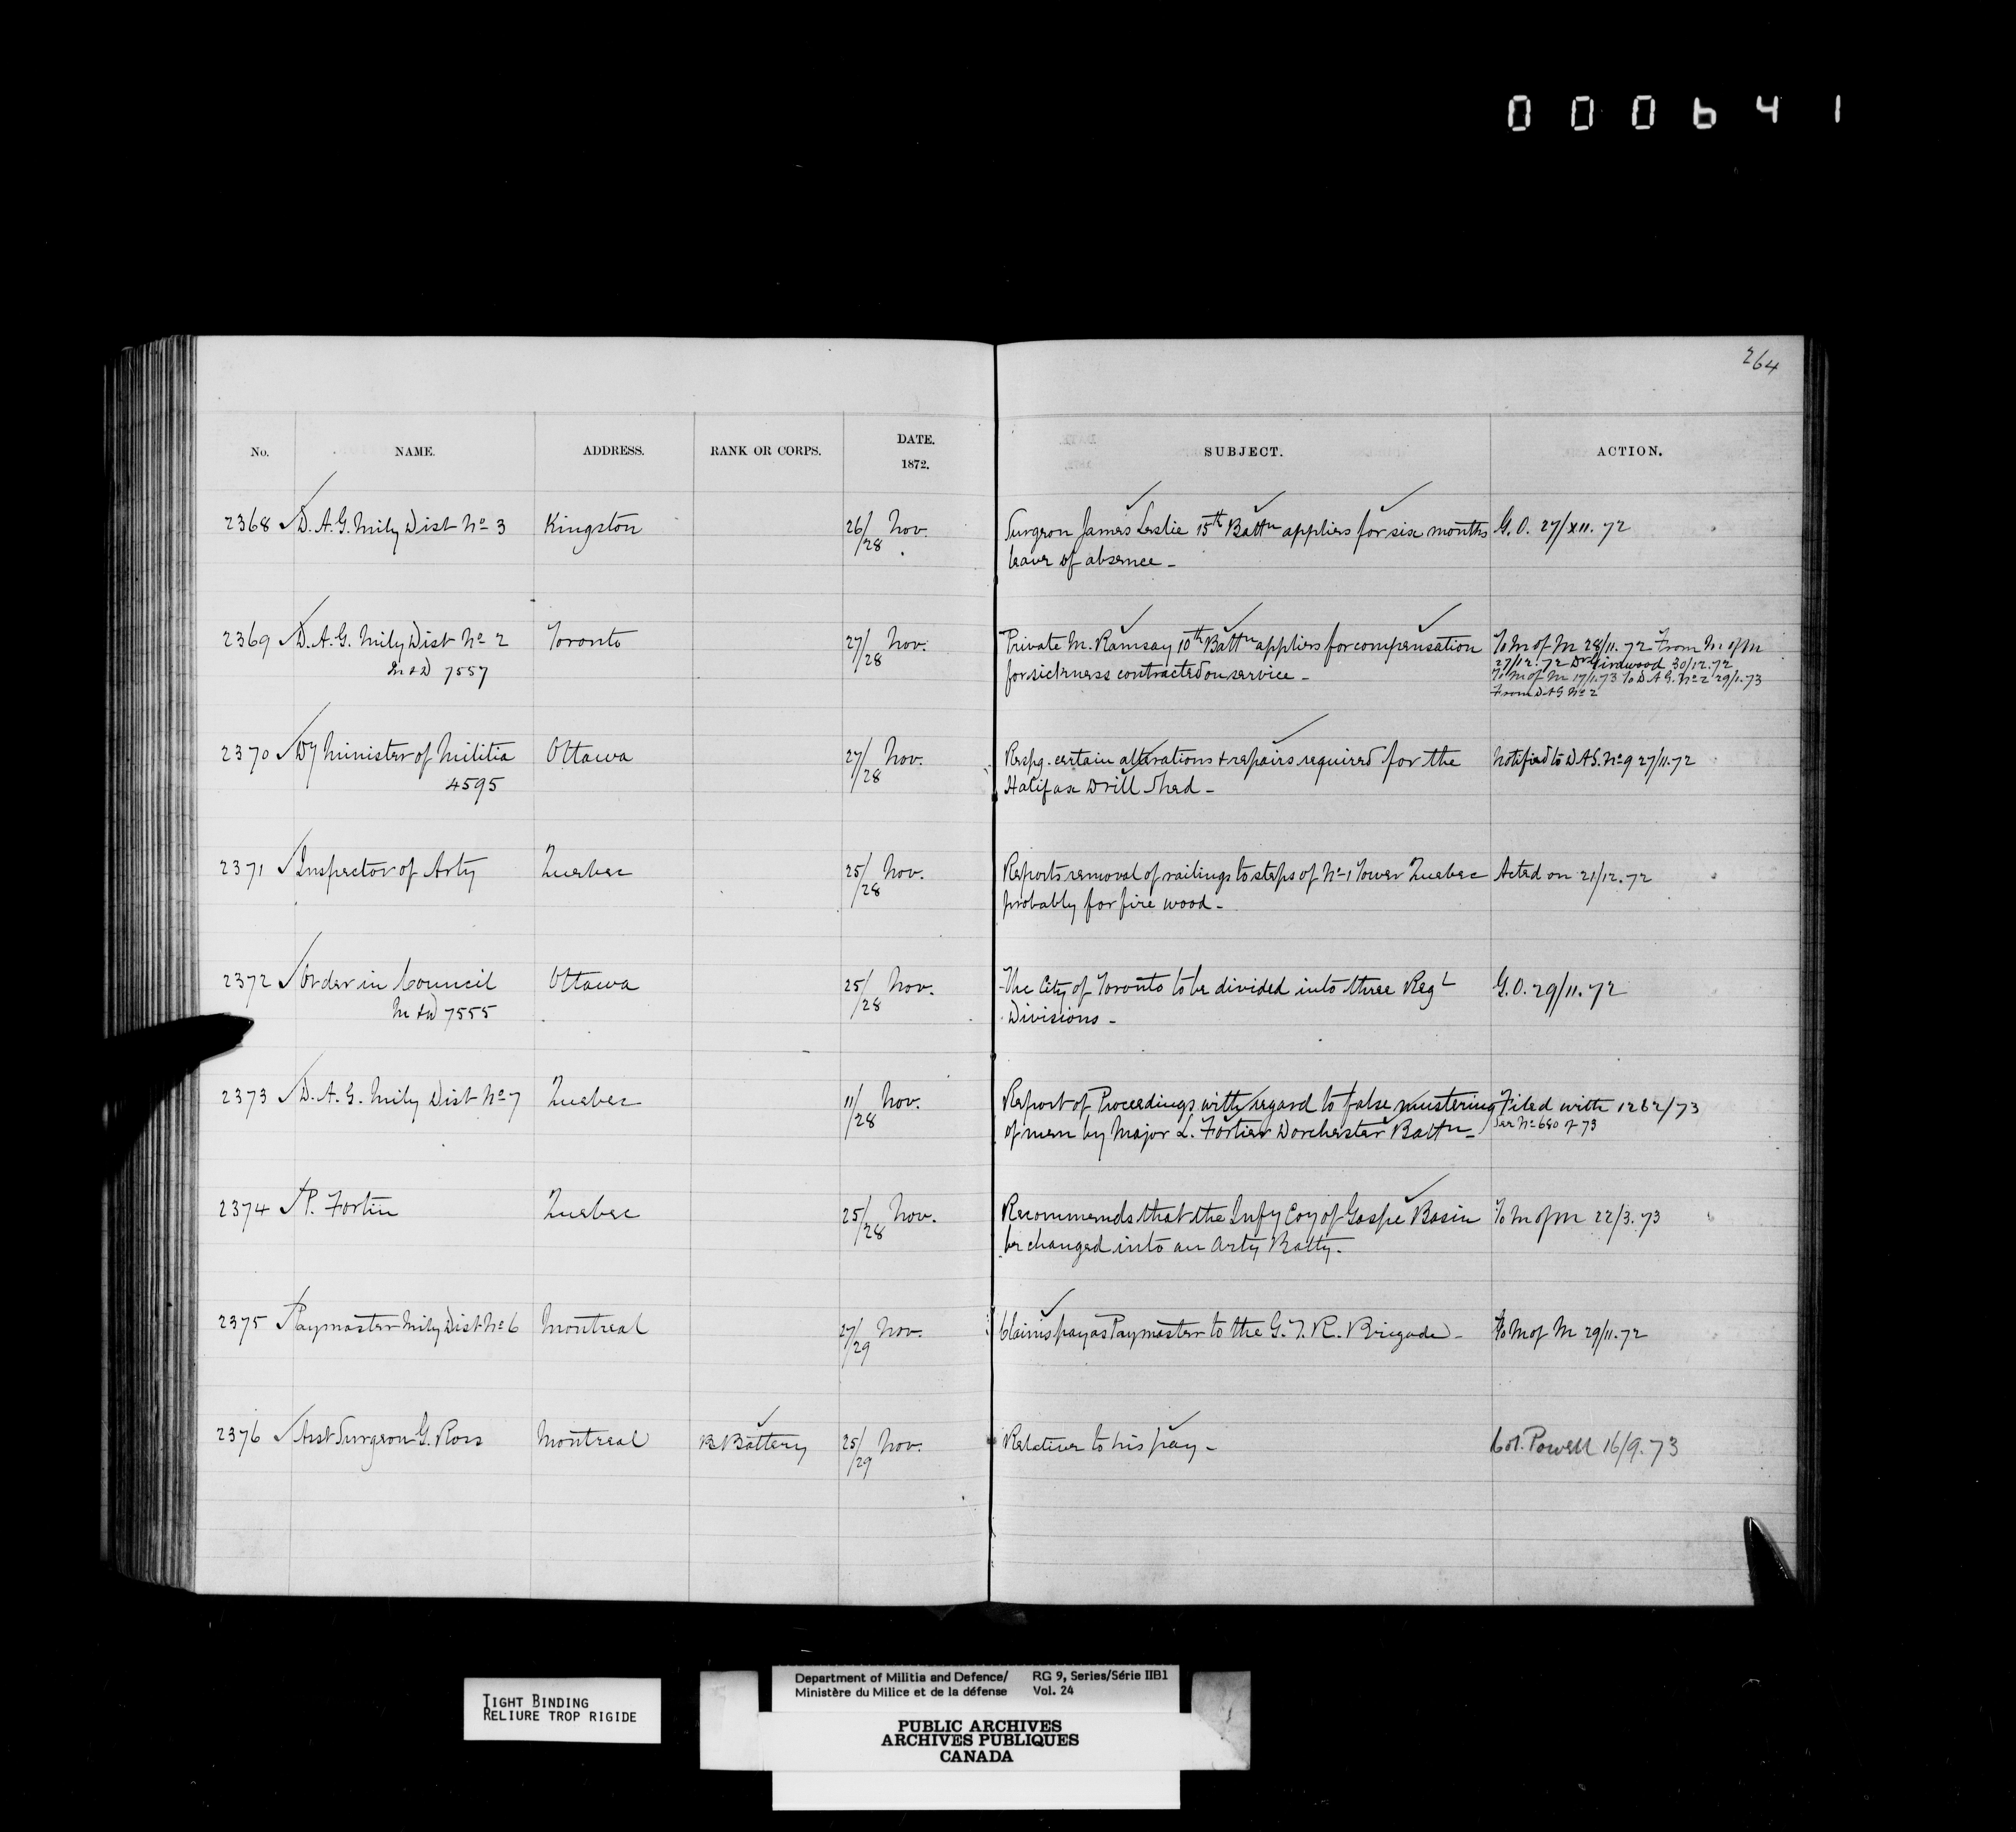 000641
264
No. NAME. ADDRESS. RANK OR CORPS. DATE. 1872. SUBJECT. ACTION.
2368 D. A. G. Mily Dist No 3 Kingston 26/28 Nov. Surgeon James Leslie 15th Battn applies for six months G. O. 27/XII. 72
leave of absence -
2369 D. A. G. Mily Dist No 2 Toronto 27/28 Nov. Private M. Ramsay 10th Battn applies for compensation To M of M 28/11. 72 From M of M
M & D 7557 for sickness contracted on service - 27/12. 72 Dr Girdwood 30/12. 72
To M of M 17/1. 73 To D A G. No 2 29/1. 73
From D A G No 2
2370 Dy Minister of Militia Ottawa 27/28 Nov. Respg. certain alterations & repairs required for the Notified to D A G. No 9 27/11. 72
4595 Halifax Drill Shed -
2371 Inspector of Arty Quebec 25/28 Nov. Reports removal of railings to steps of No 1 Tower Quebec Acted on 21/12. 72
probably for fire wood -
2372 Order in Council Ottawa 25/28 Nov. The City of Toronto to be divided into three Regl G. O. 29/11. 72
M & D 7555 Divisions -
2373 D. A. G. Mily Dist No 7 Quebec 11/28 Nov. Report of Proceedings with regard to false mustering Filed with 1262/73
of men by Major L. Fortier Dorchester Battn - See No 680 of 73
2374 P. Fortin Quebec 25/28 Nov. Recommends that the Infy Coy of Gaspé Basin To M of M 22/3. 73
be changed into an Arty Batty.
2375 Paymaster Mily Dist No 6 Montreal 27/29 Nov. Claims pay as Paymaster to the G. T. R. Brigade - To M of M 29/11. 72
2376 Asst Surgeon G. Ross Montreal B Battery 25/29 Nov. Relative to his pay - Col. Powell 16/9. 73
TIGHT BINDING
RELIURE TROP RIGIDE
Department of Militia and Defence/ RG 9, Series/Série IIB1
Ministère du Milice et de la défense Vol. 24
PUBLIC ARCHIVES
ARCHIVES PUBLIQUES
CANADA